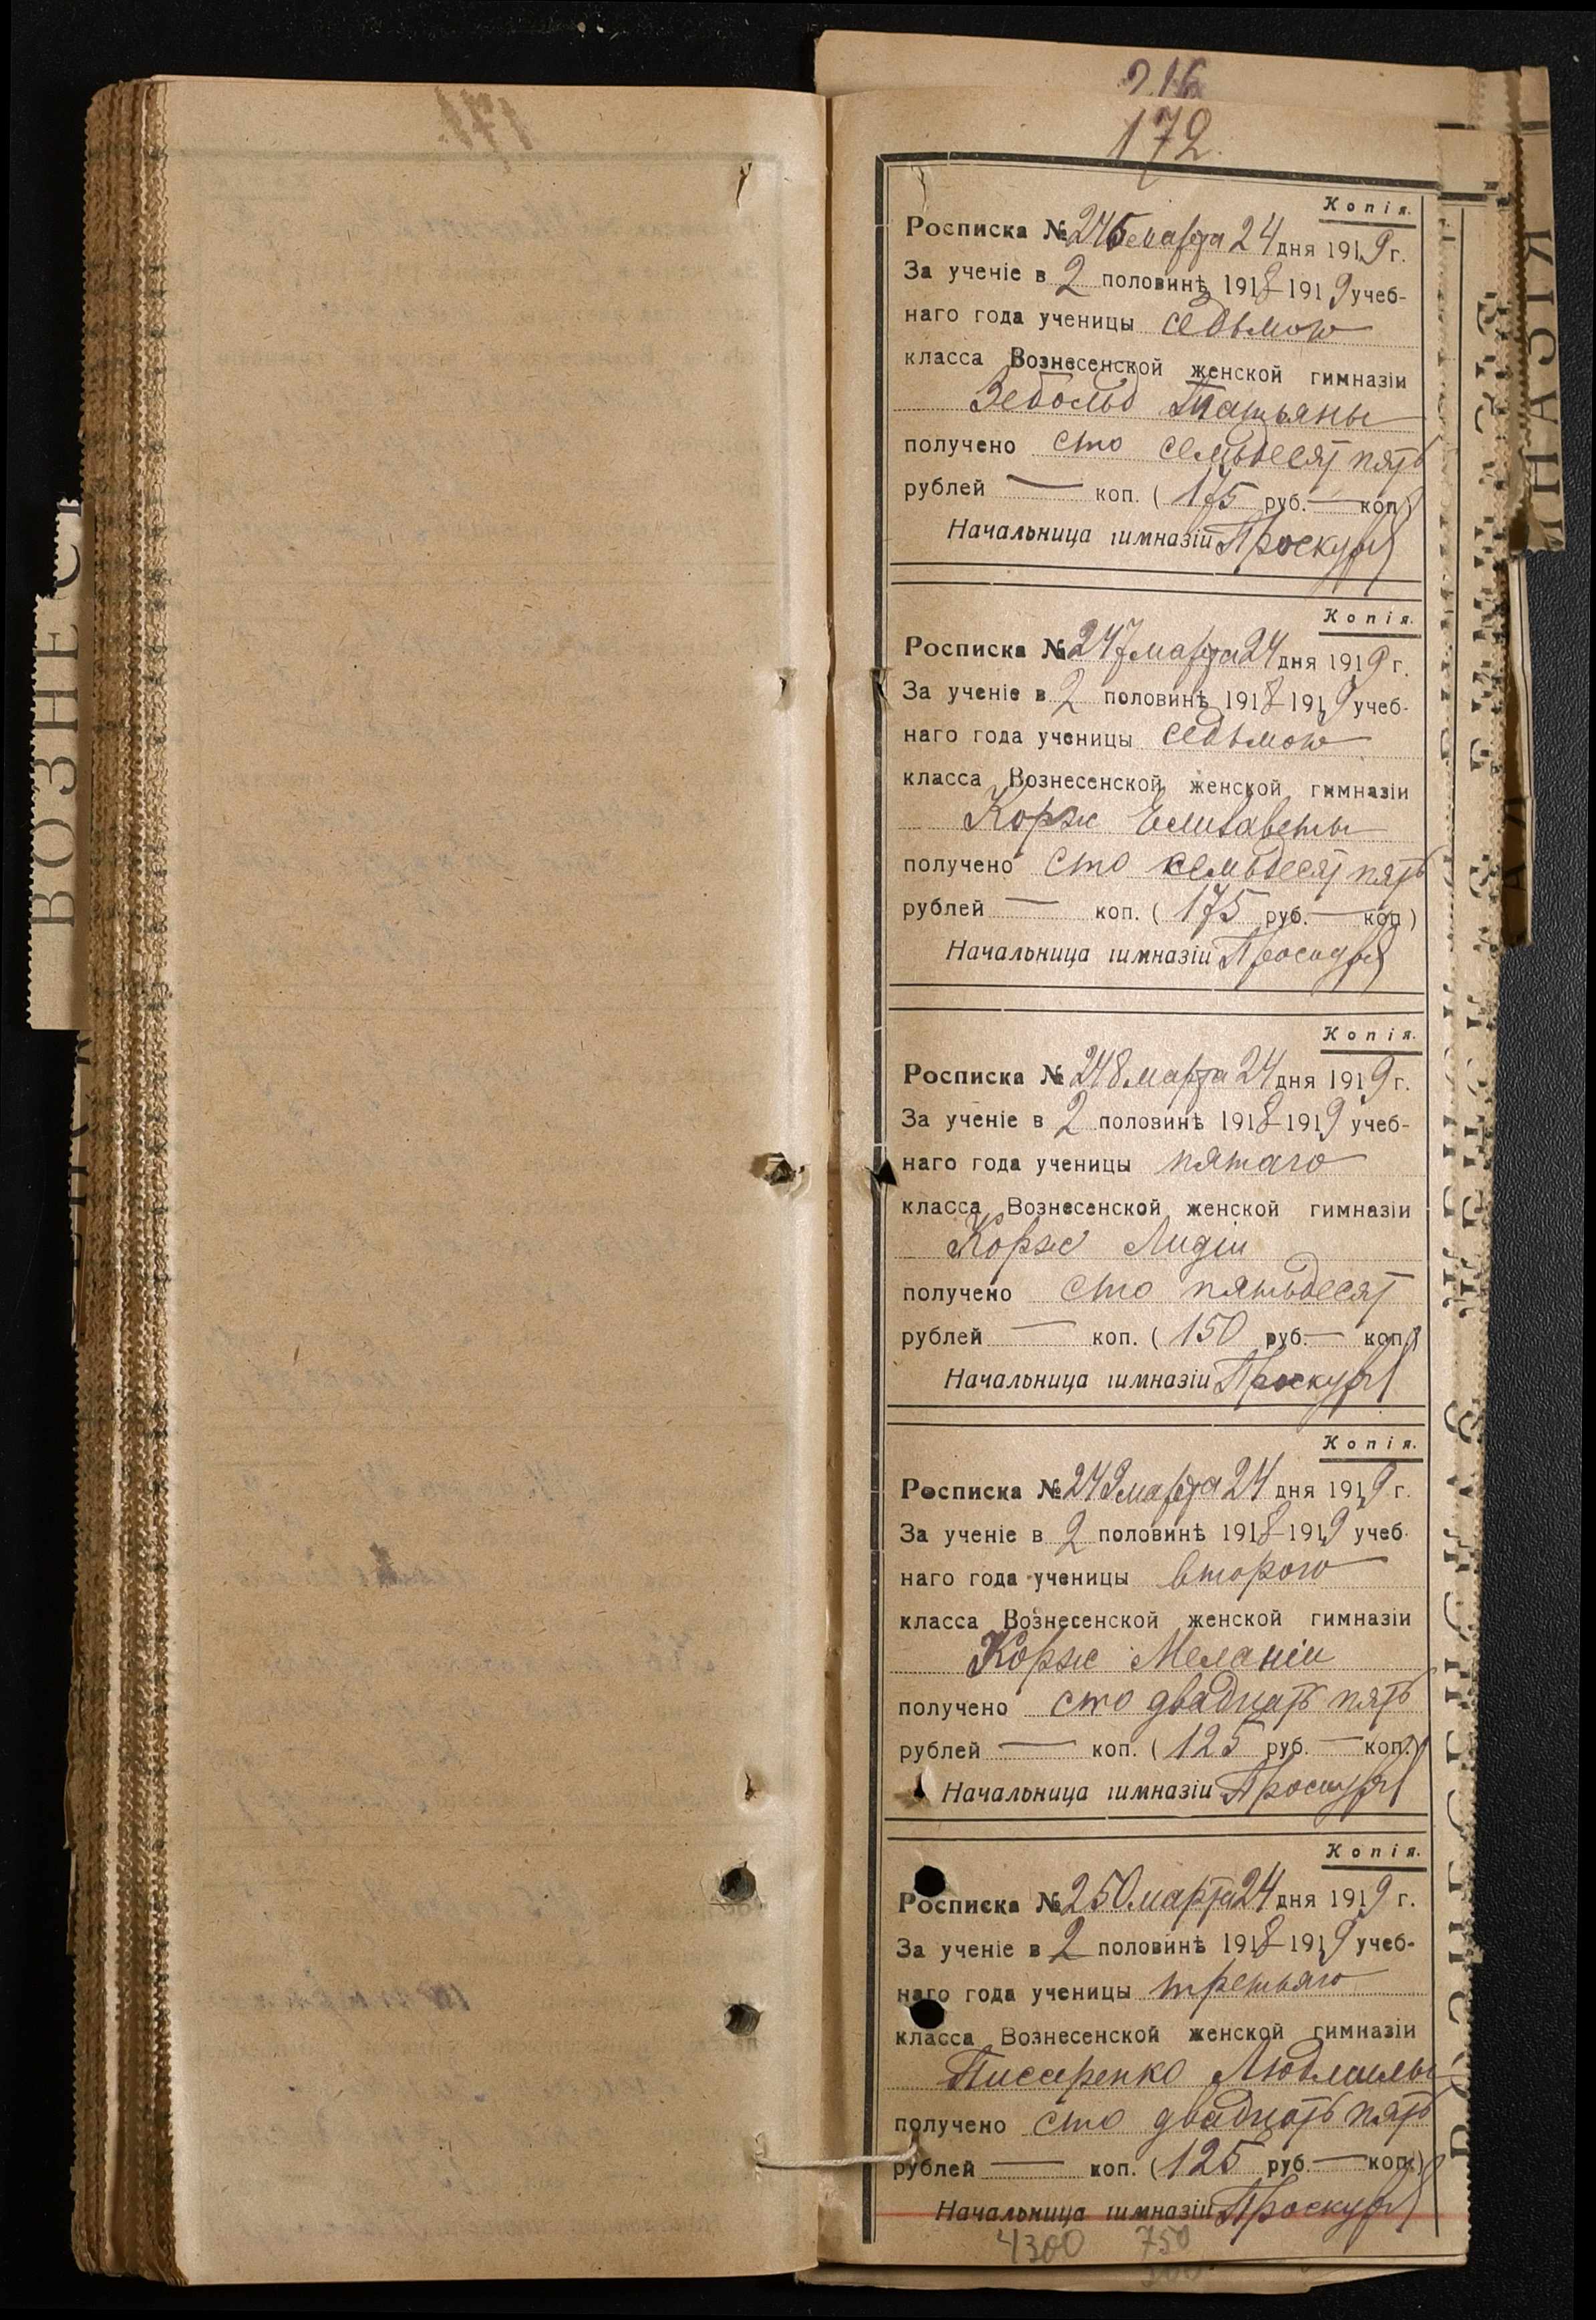 216
172.
Копія.
Росписка № 246 марта 24 дня 1919 г.
За ученіе в 2 половинѣ 1918-1919 учеб-
наго года ученицы седьмого
класса Вознесенской женской гимназіи
Зебольд Татьяны
получено сто семьдесят пять
рублей — коп. (175 руб. — коп)
Начальница гимназіи
Копія.
Росписка № 247 марта 24 дня 1919 г.
За ученіе в 2 половинѣ 1918-1919 учеб-
наго года ученицы седьмого
класса Вознесенской женской гимназіи
Корж Елизаветы
получено сто семьдесят пять
рублей — коп. (175 руб. — коп)
Начальница гимназіи
Копія.
Росписка № 248 марта 24 дня 1919 г.
За ученіе в 2 половинѣ 1918-1919 учеб-
наго года ученицы пятаго
класса Вознесенской женской гимназіи
Корж Лидіи
получено сто пятьдесят
рублей — коп. (150 руб. — коп.)
Начальница гимназіи
Копія.
Росписка № 249 марта 24 дня 1919 г.
За ученіе в 2 половинѣ 1918-1919 учеб-
наго года ученицы второго
класса Вознесенской женской гимназіи
Корж Меланіи
получено сто двадцать пять
рублей — коп. (125 руб. — коп.)
Начальница гимназіи
Копія.
Росписка № 250 марта 24 дня 1919 г.
За ученіе в 2 половинѣ 1918-1919 учеб-
наго года ученицы третьяго
класса Вознесенской женской гимназіи
Писаренко Людмилы
получено сто двадцать пять
рублей — коп. (125 руб. — коп.)
Начальница гимназіи
4300 750